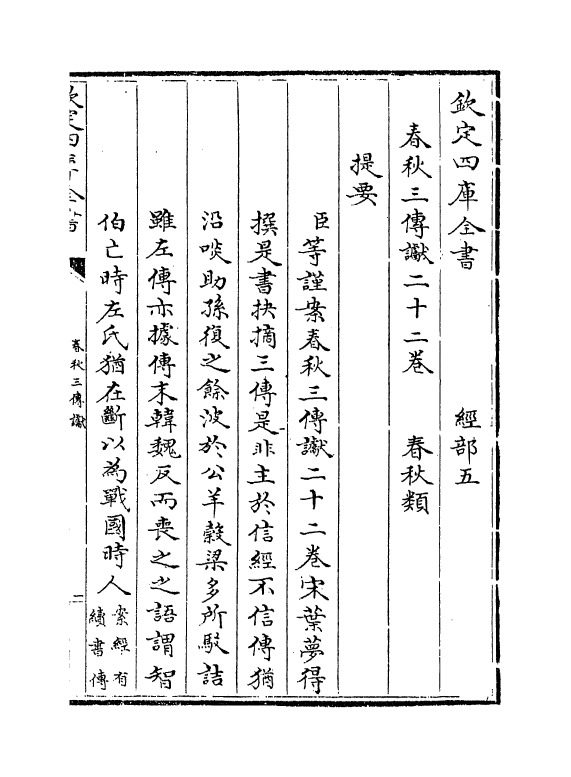 欽定四庫全書　　　　經部五
春秋三傳讞二十二卷　　春秋類
提要
臣等謹案春秋三傳讞二十二卷宋葉夢得
撰是書抉摘三傳是非主於信經不信傳猶
沿啖助孫復之餘波於公羊穀梁多所駁詰
雖左傳亦據傳末韓魏反而喪之之語謂智
伯亡時左氏猶在斷以為戰國時人案經有續書傳
欽定四庫全書
春秋三傳讞